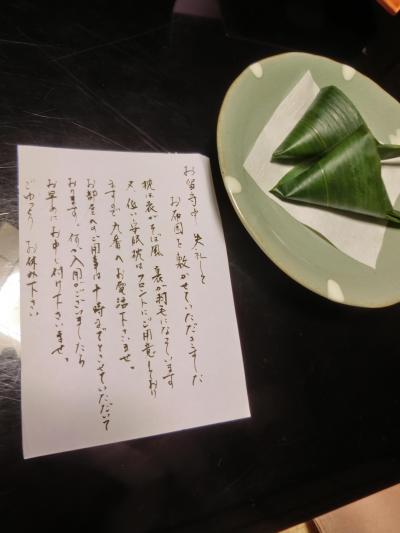 お留守中 失礼して
お布団を敷かせていただきました
枕は表がそば風、裏が羽毛になっています
又、低い安眠枕はフロントにご用意しており
ますので九番へお電話下さいませ。
お部屋へのご用事は十時までとさせていただいて
おります。何か入用がございましたら
お早めにお申し付け下さいませ。
ごゆっくり お休み下さい